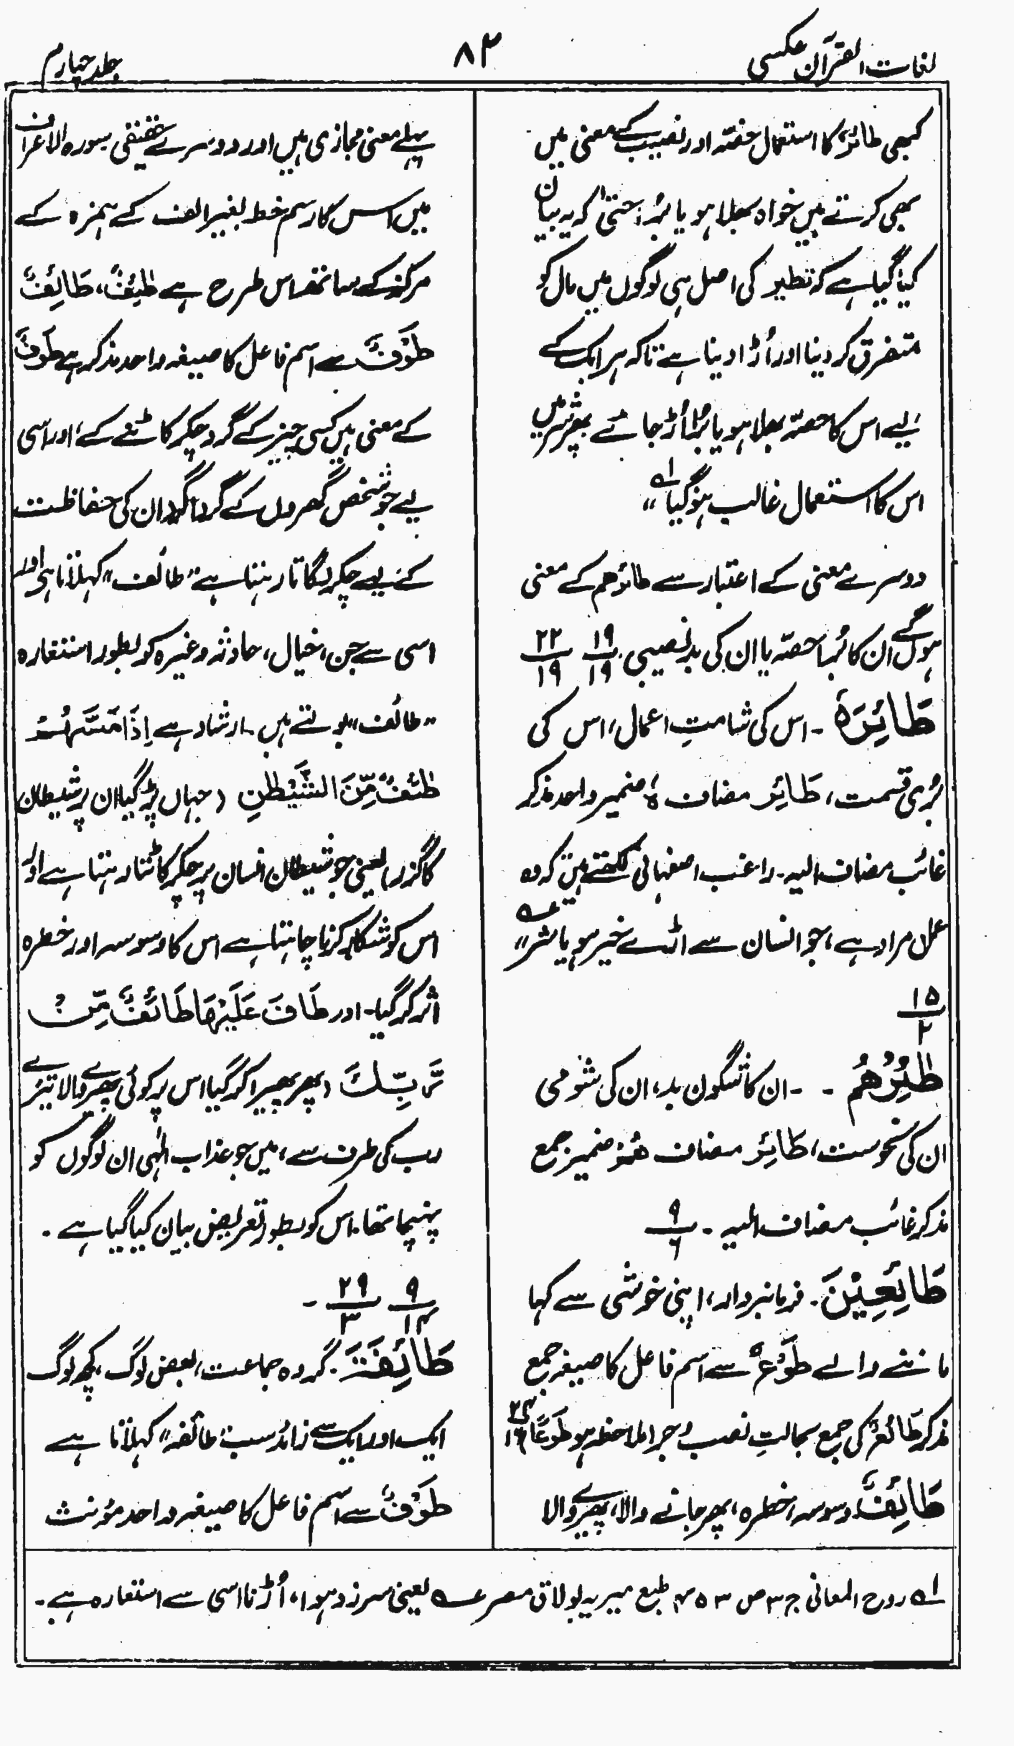 لغات القرآن عکسی
۸۲
جلد چہارم
کبھی طائرٌ کا استعمال حصّہ اور نصیب کے معنی میں
بھی کرتے ہیں خواہ بھلا ہو یا بُرا، حتیٰ کہ یہ بیان
کیا گیا ہے کہ تطیر کی اصل ہی لوگوں میں مال کو
متفرق کر دینا اور اُڑا دینا ہے تاکہ ہر ایک کے
لیے اس کا حصّہ بھلا ہو یا بُرا اُڑ جائے پھر شر میں
اس کا استعمال غالب ہو گیا لہ"
دوسرے معنی کے اعتبار سے طائرھم کے معنی
ہوں گے ان کا بُرا حصّہ یا ان کی بدنصیبی ۱۹/۱۹ ۲۲/۱۹
طَائِرَہٗ ۔ اس کی شامتِ اعمال، اس کی
بُری قسمت، طَائِر مضاف ہٗ ضمیر واحد مذکر
غائب مضاف الیہ۔ راغب اصفہانی لکھتے ہیں کہ وہ
عمل مراد ہے، جو انسان سے اڑے خیر ہو یا شر" عہ
۱۵/۲
طٰئِرُھُم ۔ ۔ ان کا شگون بد، ان کی شومی
ان کی نحوست، طَائِر مضاف ھُمْ ضمیر جمع
مذکر غائب مضاف الیہ ۔ ۹/۶
طَائِعِیْنَ ۔ فرمانبردار، اپنی خوشی سے کہا
ماننے والے طَوْعٌ سے اسم فاعل کا صیغہ جمع
مذکر طَائعٌ کی جمع بحالتِ نصب و جر ملاحظہ ہو طَوْعًا
طَائِفٌ وسوسہ، خطرہ، پھر جانے والا، پھیرے والا
پہلے معنی مجازی ہیں اور دوسرے حقیقی سورہ الاعراف
میں اس کا رسم خط بغیر الف کے ہمزہ کے
مرکز کے ساتھ اس طرح ہے طٰئِفٌ، طَائِفٌ
طَوْفٌ سے اسم فاعل کا صیغہ واحد مذکر ہے طَوْفٌ
کے معنی ہیں کسی چیز کے گرد چکر کاٹنے کے، اور اسی
لیے جو شخص گھروں کے گرداگرد ان کی حفاظت
کے لیے چکر لگاتا رہتا ہے "طائف" کہلاتا ہے، اور
اسی سے جن، خیال، حادثہ وغیرہ کو بطور استعارہ
"طائف" بولتے ہیں ۔ ارشاد ہے اِذَا مَسَّهُمْ
طٰٓئِفٌ مِّنَ الشَّیْطٰنِ (جہاں پڑ گیا ان پر شیطان
کا گزر) یعنی جو شیطان انسان پر چکر کاٹتا رہتا ہے اور
اس کو شکار کرنا چاہتا ہے اس کا وسوسہ اور خطرہ
اثر کر گیا۔ اور طَافَ عَلَیْهَا طَائِفٌ مِّنْ
رَّبِّكَ (پھر پھیرا کر گیا اس پر کوئی پھیرے والا تیرے
رب کی طرف سے، میں جو عذاب الٰہی ان لوگوں کو
پہنچا تھا۔ اس کو بطور تعریض بیان کیا گیا ہے ۔
۹/۱۴ ۲۹/۳ ۔
طَائِفَۃٌ ۔ گروہ جماعت، بعض لوگ، کچھ لوگ
ایک اور ایک سے زائد سب "طائفہ" کہلاتا ہے
طَوْفٌ سے اسم فاعل کا صیغہ واحد مؤنث
لہ روح المعانی ج ۳ ص ۴۵۳ طبع میریہ بولاق مصر عہ یعنی سرزد ہوا، اُڑنا اسی سے استعارہ ہے۔